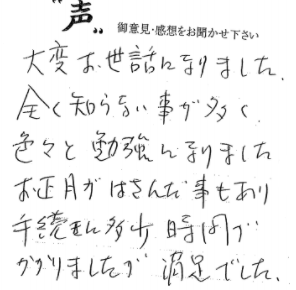 “声”
御意見・感想をお聞かせ下さい
大変お世話になりました。
全く知らない事が多く、
色々と勉強になりました
お正月がはさんだ事もあり
手続きに多少時間が
かかりましたが満足でした。